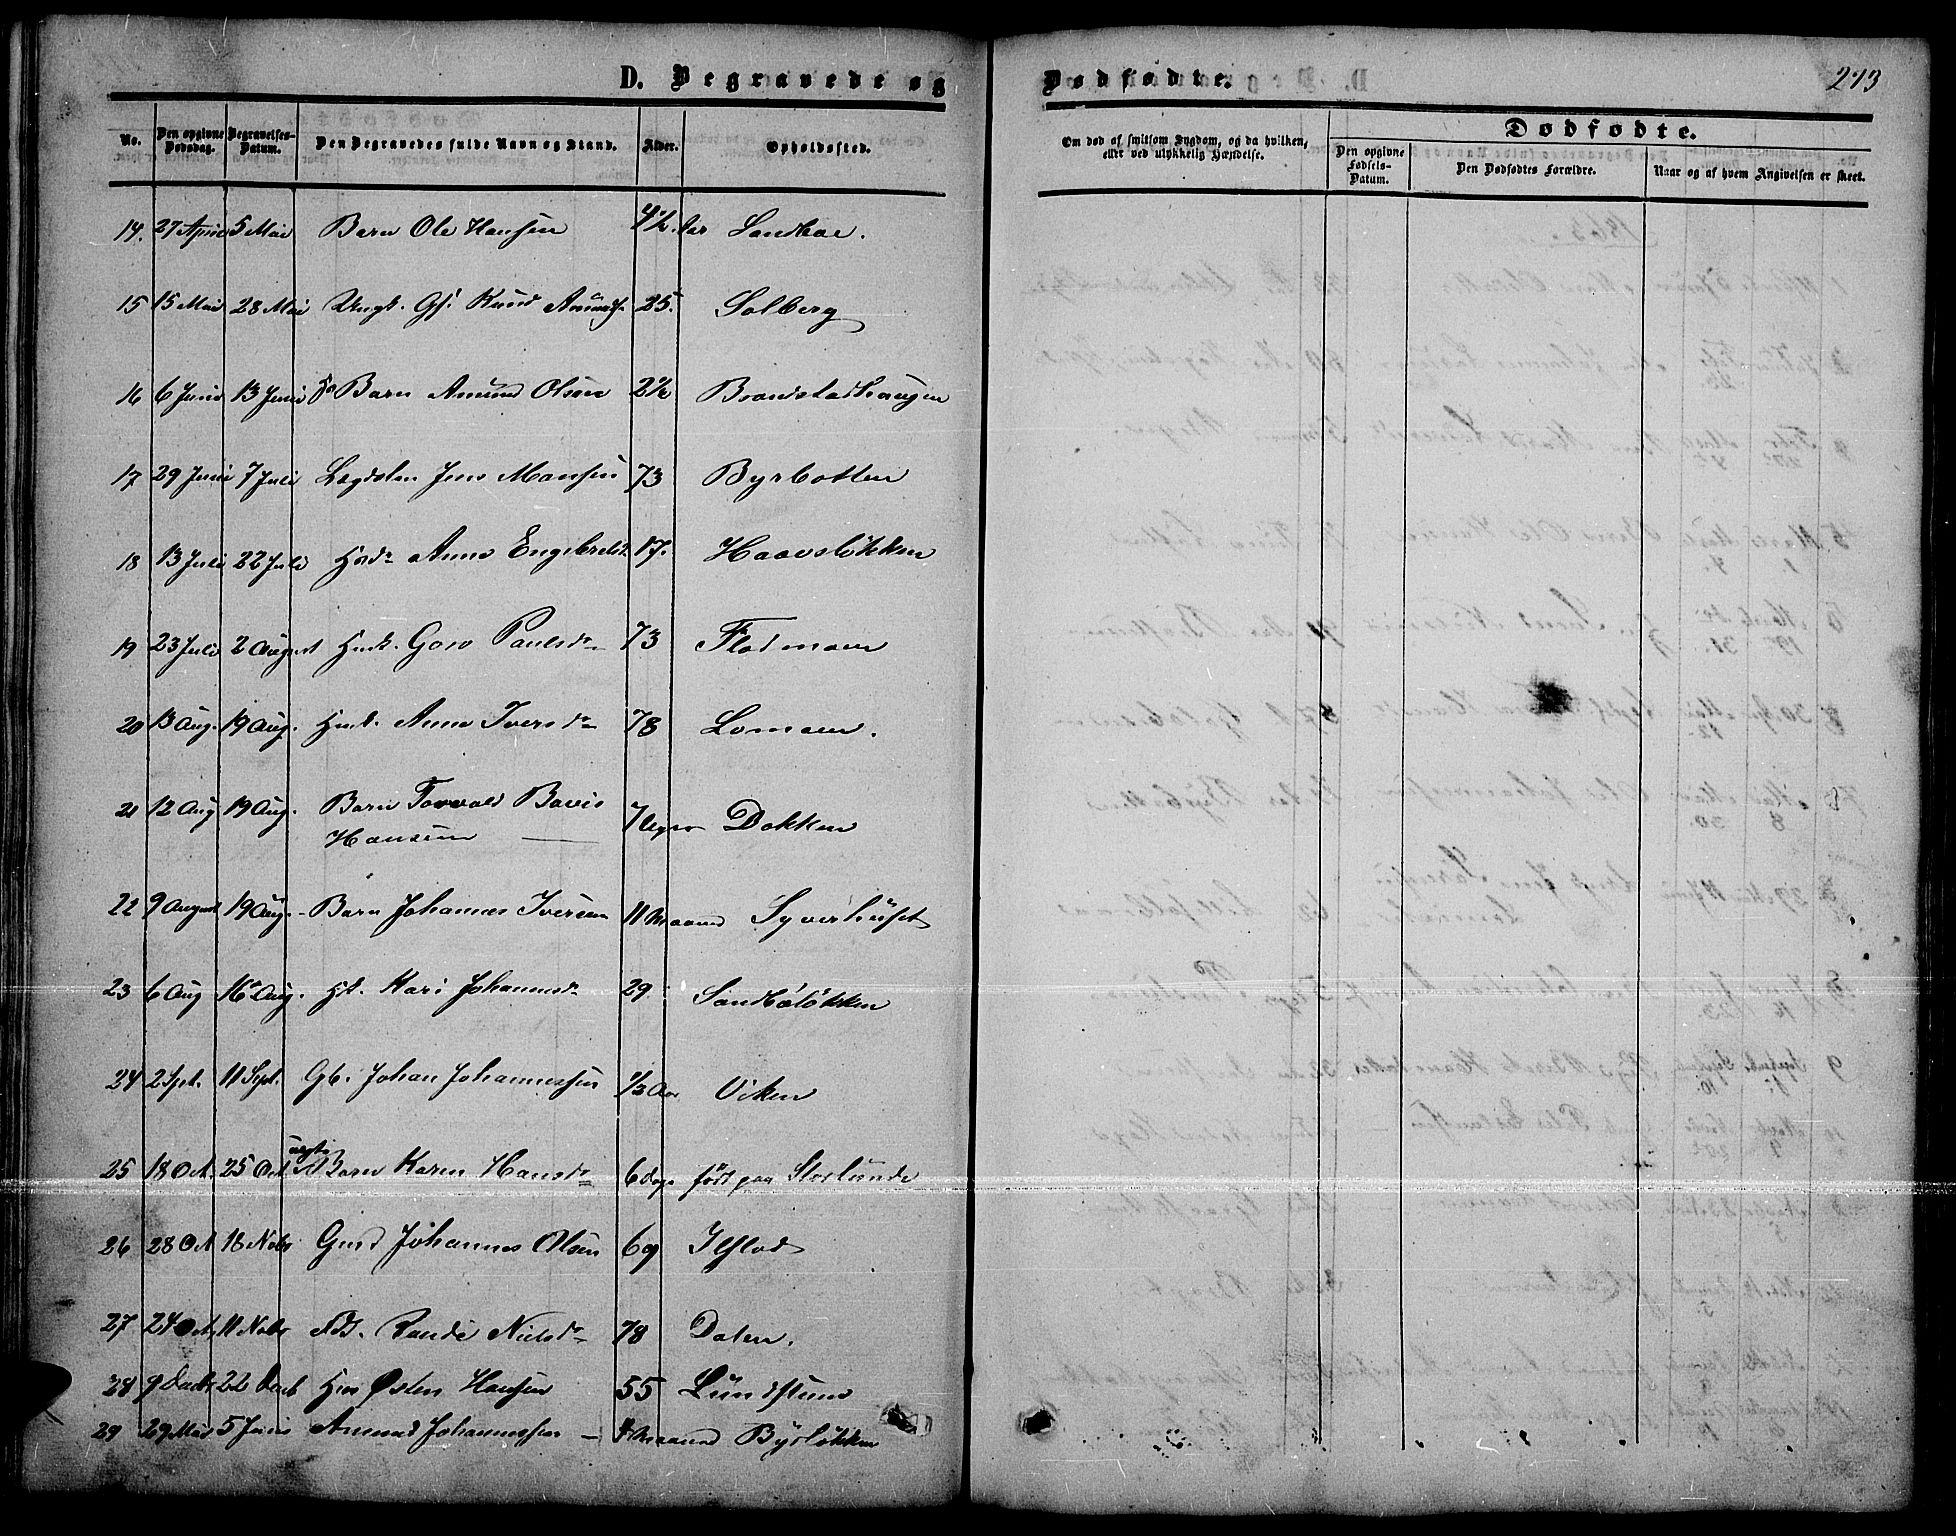 D. Begravede og
Dødfødte.
273
No.
Den opgivne Dødsdag.
Begravelses-Datum.
Den Begravedes fulde Navn og Stand.
Alder.
Opholdssted.
Om død af smitsom Sygdom, og da hvilken,
eller ved ulykkelig Hændelse.
Dødfødte.
Den opgivne Fødsels-Datum.
Den Dødfødtes Forældre.
Naar og af hvem Angivelsen er skeet.
14. 27 April 5 Mai Barn Ole Hansen 4½ Aar Sandboe.
15 15 Mai 28 Mai Ungk. Gs. Knud Amunds. 25. Solberg
16 6 Juni 13 Juni Barn Amund Olsen 2½ Brandstadhaugen
17 29 Juni 7 Juli Lægdslm Jens Hansen 73 Byrbotten
18 13 Juli 22 Juli Hosd. Anne Engebretsd. 17. Haavsløkken
19 23 Juli 2 August Huk. Goro Paulsdr 73 Flatmoen
20 13 Aug. 19 Aug. Huk. Anne Iversdr 78 Lomoen.
21 12 Aug 19 Aug. Barn Torvald Bovis
Hansen 7 Uger Dokken
22 9 August 19 Aug. Barn Johannes Iversen 11 Maaned Syverhuset
23 6 Aug 16 Aug. Kari Johannesdr 29 Sandbøløkken
24 2 Spt. 11 Sept. Gb. Johan Johannessen ½ Aar Viken
25 18 Oct. 25 Oct uægte Barn Karen Hansdr 6 dage født paa Storlunde
26 28 Oct 18 Nobr Gmd Johannes Olsen 69 Ilflod
27 24 Oct. 11 Nobr Fds. Rande Nielsdr 78 Dalen.
28 9 Decbr 22 Decb Østen Hansen 55 Lundstuen
29 29 Mai 5 Juni Amund Johannessen Maaned Byrløkken